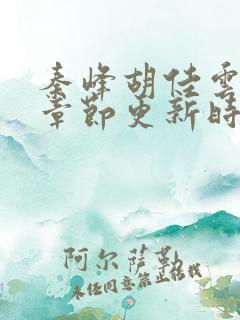 秦峰胡佳雲
章節更新時
阿尔萨勒
未经同意禁止转载